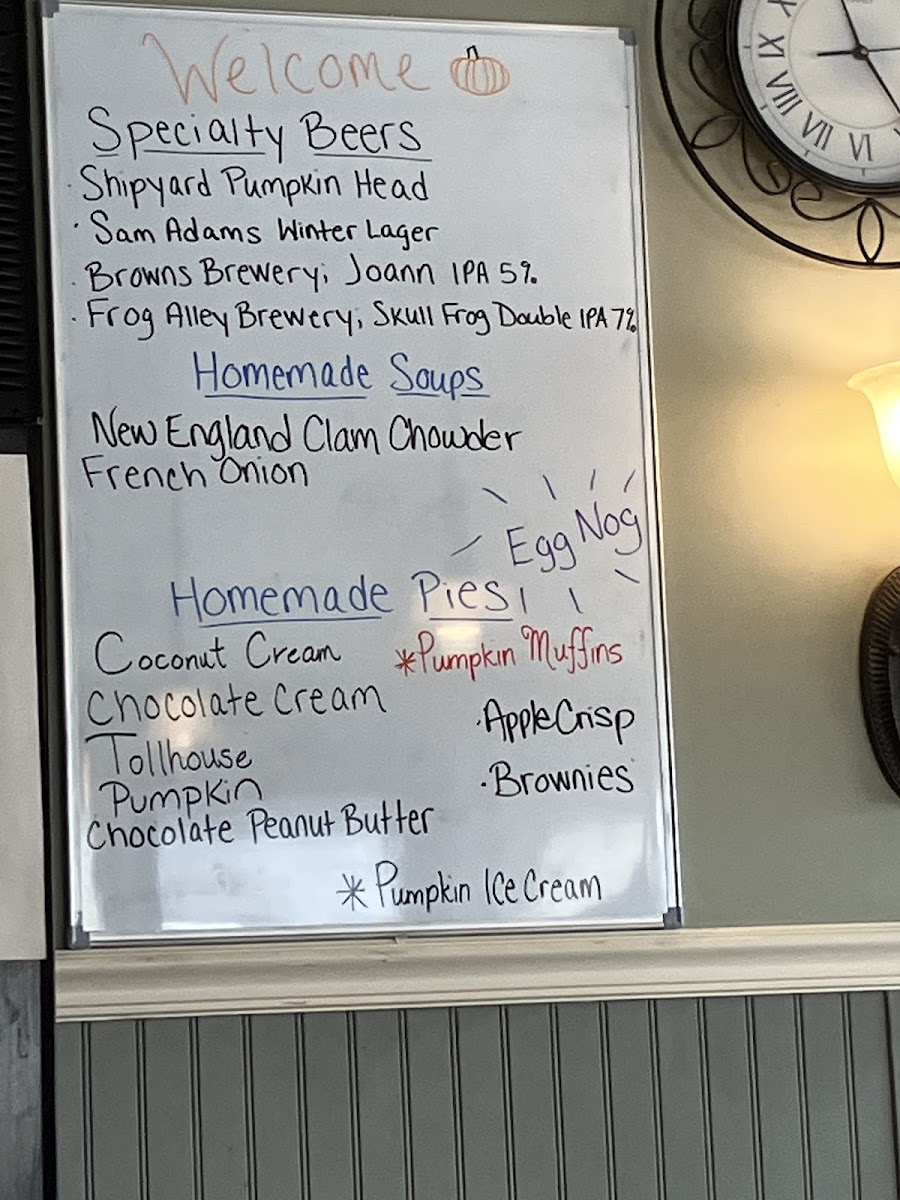 Welcome
Specialty Beers
· Shipyard Pumpkin Head
· Sam Adams Winter Lager
· Browns Brewery; Joann IPA 5%
· Frog Alley Brewery; Skull Frog Double IPA 7%
Homemade Soups
New England Clam Chowder
French Onion
Egg Nog
Homemade Pies
Coconut Cream
Chocolate Cream
Tollhouse
Pumpkin
Chocolate Peanut Butter
*Pumpkin Muffins
·Apple Crisp
·Brownies
*Pumpkin Ice Cream
XI
IX
VIII
VII
VI